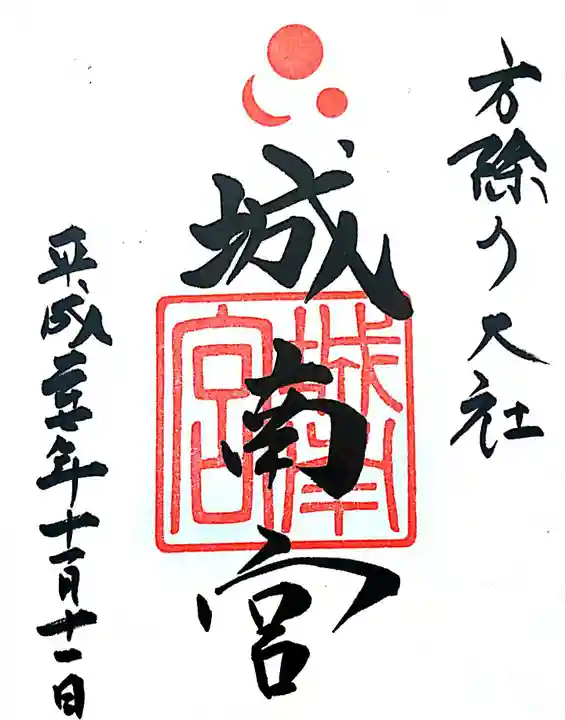 方除の大社
城南宮
城南宮
平成年十一月十一日